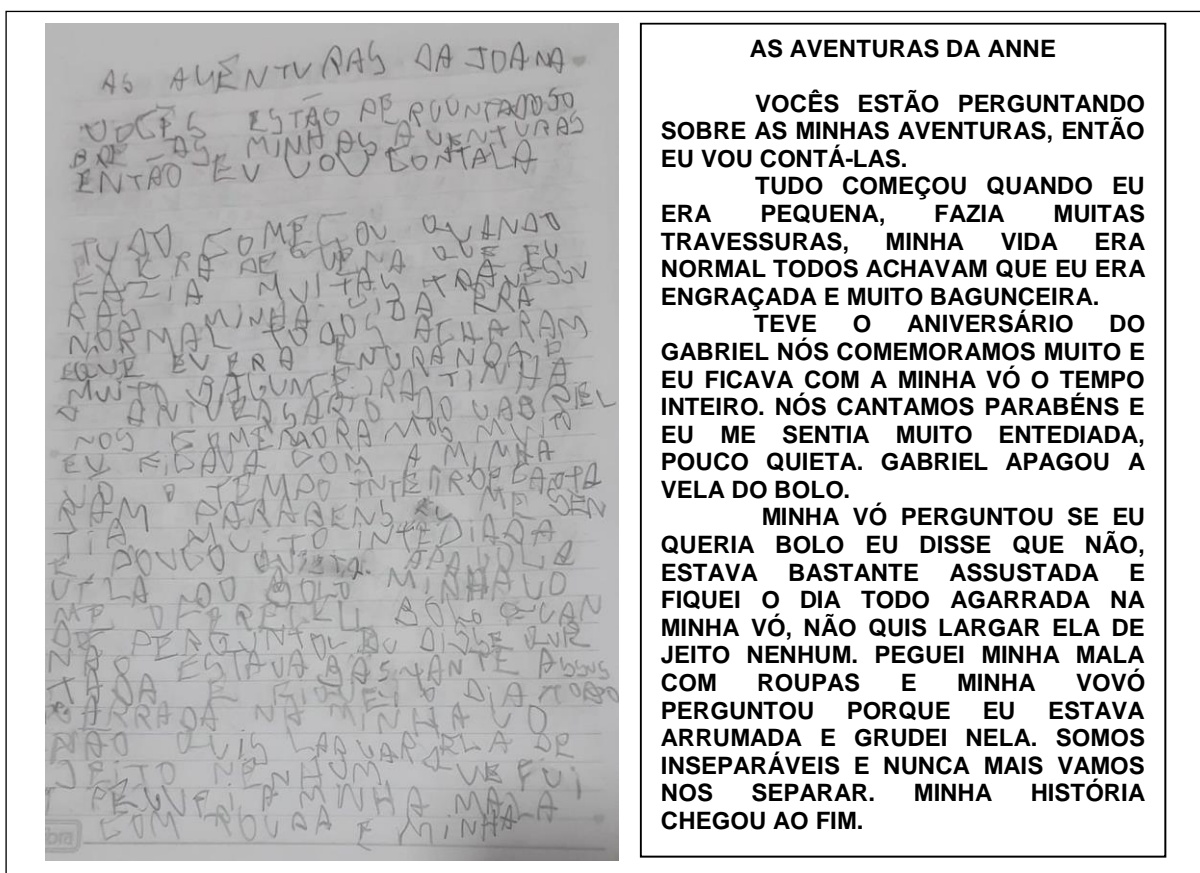 AS AVENTURAS DA JOANA
VOCÊS ESTÃO PERGUNTANDOSO
BRE AS MINHAS AVENTURAS
ENTÃO EU VOU CONTALA
TUDO COMEÇOU QUANDO
EU ERA PEQUENA QUE EU
FAZIA MUITAS TRAVESSU
RAS MINHA VIDA ERA
NORMAL TODOS ACHARAM
EQUE EU ERA
MUITO TINHA
O ANIVERSARIO DO GABRIEL
NOS MUITO
EU FICAVA COM A MINHA
VO O TEMPO INTEIRO
PARABENS EU ME SEN
TIA MUITO INTEDIADA
E POUCO
VELA DO BOLO MINHA VO
ME BOLO
PERGUNTOU EU DISSE QUE
NÃO ESTAVA BASTANTE ASSUS
TADA E FIQUEI O DIA
GARRADA NA MINHA VO
NÃO QUIS LARGAR ELA DE
JEITO NENHUM
PEGUEI A MINHA MALA
COM ROUPA E MINHA
bra
AS AVENTURAS DA ANNE
VOCÊS ESTÃO PERGUNTANDO
SOBRE AS MINHAS AVENTURAS, ENTÃO
EU VOU CONTÁ-LAS.
TUDO COMEÇOU QUANDO EU
ERA PEQUENA, FAZIA MUITAS
TRAVESSURAS, MINHA VIDA ERA
NORMAL TODOS ACHAVAM QUE EU ERA
ENGRAÇADA E MUITO BAGUNCEIRA.
TEVE O ANIVERSÁRIO DO
GABRIEL NÓS COMEMORAMOS MUITO E
EU FICAVA COM A MINHA VÓ O TEMPO
INTEIRO. NÓS CANTAMOS PARABÉNS E
EU ME SENTIA MUITO ENTEDIADA,
POUCO QUIETA. GABRIEL APAGOU A
VELA DO BOLO.
MINHA VÓ PERGUNTOU SE EU
QUERIA BOLO EU DISSE QUE NÃO,
ESTAVA BASTANTE ASSUSTADA E
FIQUEI O DIA TODO AGARRADA NA
MINHA VÓ, NÃO QUIS LARGAR ELA DE
JEITO NENHUM. PEGUEI MINHA MALA
COM ROUPAS E MINHA VOVÓ
PERGUNTOU PORQUE EU ESTAVA
ARRUMADA E GRUDEI NELA. SOMOS
INSEPARÁVEIS E NUNCA MAIS VAMOS
NOS SEPARAR. MINHA HISTÓRIA
CHEGOU AO FIM.